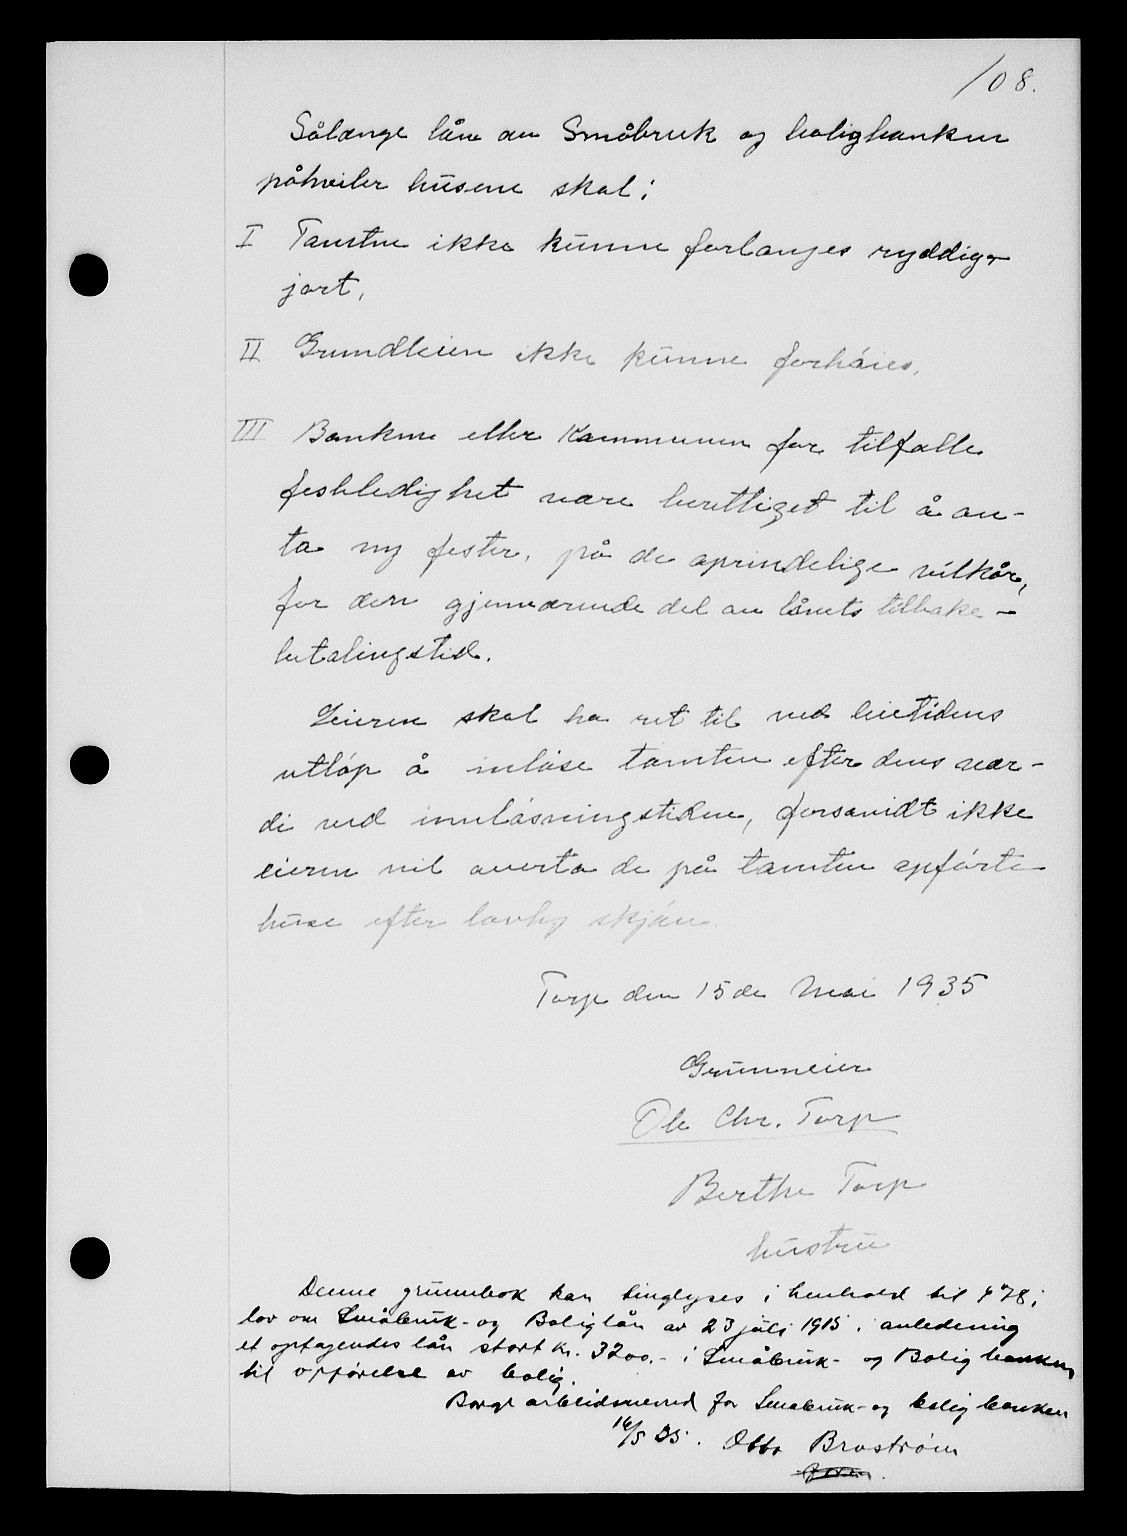 108.
Sålænge lån av Småbruk og boligbanken
påhviler husene skal:
I Tomten ikke kunne forlanges ryddig-
jort,
II Grundleien ikke kunne forhöies.
III Banken eller Kommunen for tilfælle
festeledighet være berettiget til å an-
ta ny fester, på de oprindelige vilkår,
for den gjenværende del av lånets tilbake-
betalingstid.
Leieren skal ha ret til ved leietidens
utløp å inløse tomten efter dens vær-
di ved innløsningstiden, forsavidt ikke
eieren vil overta de på tomten opførte
huse efter lovlig skjøn.
Torp den 15de Mai 1935
Grunneier
Ole Chr. Torp
Berthe Torp
hustru
Denne grunnbok kan tinglyses i henhold til § 78 i
lov om Småbruk- og Boliglån av 23 juli 1915 i anledning
et optagendes lån stort kr. 3200.- i Småbruk- og Boligbanken
til opførelse av bolig.
Borge arbeidsnevnd for Småbruk- og boligbanken
16/5 35. Otto Brostrøm